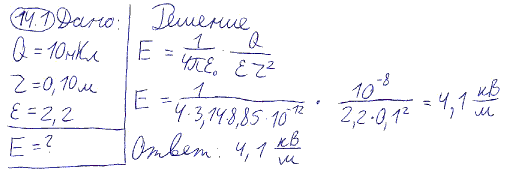 14.1 Дано:
Q = 10 нКл
r = 0,10 м
ε = 2,2
E = ?
Решение
E = 1/4πε₀ · Q/εr²
E = 1/4·3,14·8,85·10⁻¹² · 10⁻⁸/2,2·0,1² = 4,1 кВ/м
Ответ: 4,1 кВ/м